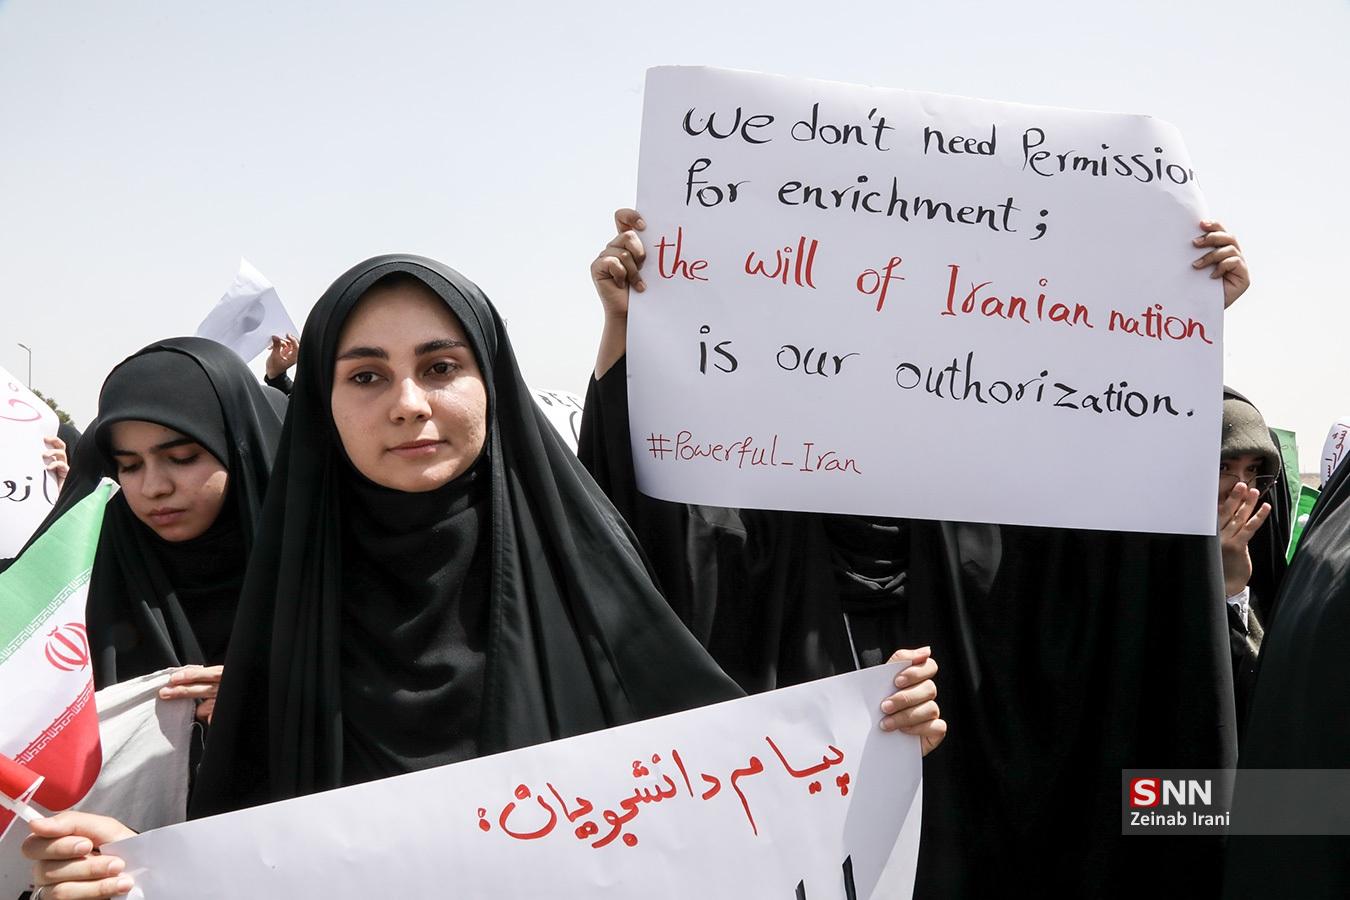 we don't need Permission
for enrichment;
the will of Iranian nation
is our outhorization.
#Powerful_Iran
پیام دانشجویان:
SNN
Zeinab Irani